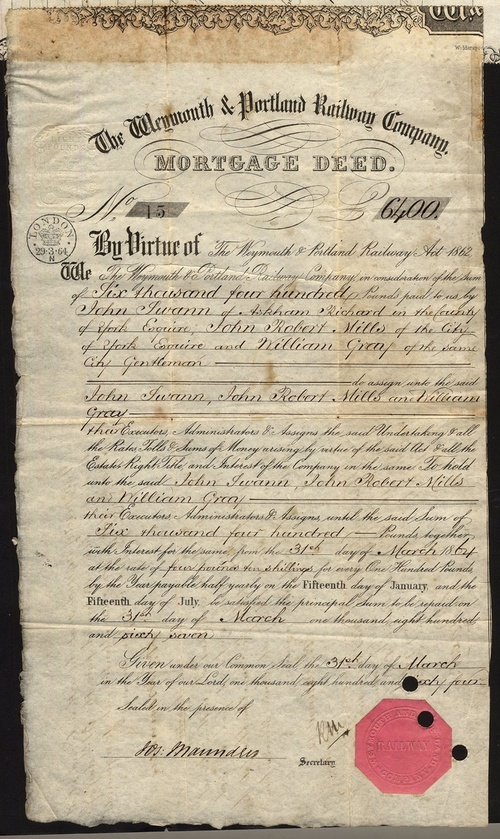 The Weymouth & Portland Railway Company.
MORTGAGE DEED.
No. 15 £ 6400.
LONDON
29·3·64
N
By Virtue of The Weymouth & Portland Railway Act 1862
We The Weymouth & Portland Railway Company, in consideration of the Sum
of Six thousand four hundred Pounds paid to us by
John Swann of Askham Richard in the County
of York Esquire, John Robert Mills of the City
of York Esquire and William Gray of the same
City Gentleman
do assign unto the said
John Swann, John Robert Mills and William
Gray
their Executors, Administrators & Assigns the said Undertaking & all
the Rates, Tolls & Sums of Money arising by virtue of the said Act & all the
Estate Right Title, and Interest of the Company in the same To hold
unto the said John Swann, John Robert Mills
and William Gray
their Executors, Administrators & Assigns, until the said Sum of
Six thousand four hundred Pounds together
with Interest for the same, from the 31st day of March 1864
at the rate of four pounds ten shillings, for every One Hundred Pounds
by the Year payable half yearly on the Fifteenth day of January, and the
Fifteenth day of July, be satisfied the principal Sum to be repaid on
the 31st day of March one thousand eight hundred
and sixty seven
Given under our Common Seal the 31st day of March
in the Year of our Lord, one thousand eight hundred and sixty four
Sealed in the presence of
Jos: Maunders
Secretary
RAILWAY